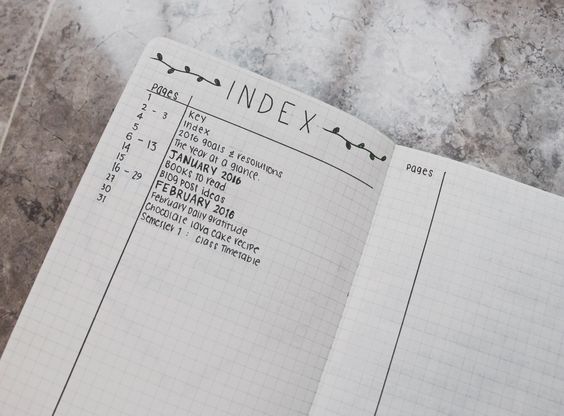 INDEX
Pages
1 Key
2 - 3 Index
4 2016 goals & resolutions
5 The year at a glance.
6 - 13 JANUARY 2016
14 Books to read
15 Blog post ideas
16 - 29 FEBRUARY 2016
February daily gratitude
30 Chocolate lava cake recipe
31 Semester 1 : Class Timetable
Pages